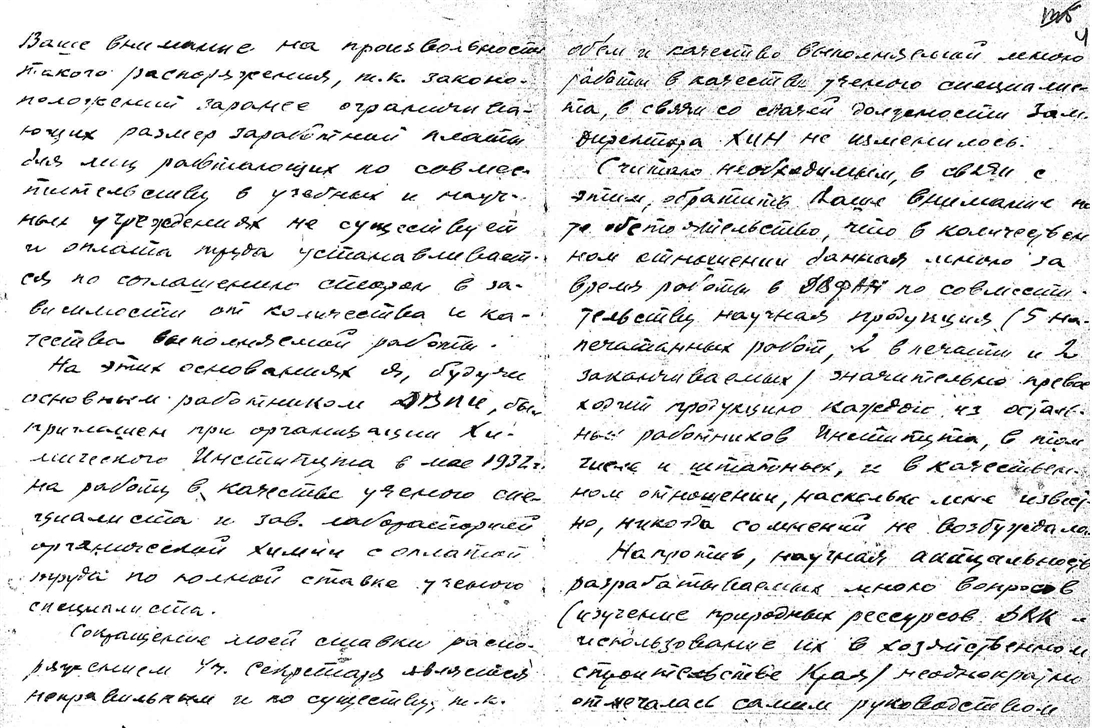 Ваше внимание на произвольность
такого распоряжения, т.к. законо-
положений заранее ограничива-
ющих размер заработной платы
для лиц работающих по совмес-
тительству в учебных и науч-
ных учреждениях не существует
и оплата труда устанавливает-
ся по соглашению сторон в за-
висимости от количества и ка-
чества выполняемой работы.
На этих основаниях я, будучи
основным работником ДВПИ, был
приглашен при организации Хи-
мического Института в мае 1932 г.
на работу в качестве ученого спе-
циалиста и зав. лабораторией
органической химии с оплатой
труда по полной ставке ученого
специалиста.
Сокращение моей ставки распо-
ряжением Уч. Секретаря является
неправильным и по существу, т.к.
4
обем и качество выполняемой мною
работы в качестве ученого специалис-
та, в связи со сдачей должности Зам.
директора ХИН не изменилось.
Считаю необходимым, в связи с
этим, обратить Ваше внимание на
то обстоятельство, что в количествен
ном отношении данная мною за
время работы в ДВФАН по совмести-
тельству научная продукция (5 на-
печатанных работ, 2 в печати и 2
заканчиваемых) значительно превос
ходит продукцию каждого из осталь-
ных работников Института, в том
числе и штатных, и в качествен-
ном отношении, насколько мне извест-
но, никогда сомнений не возбуждала.
Напротив, научная актуальность
разрабатываемых мною вопросов
(изучение природных рессурсов ДВК и
использование их в хозяйственном
строительстве Края) неоднократно
отмечалась самим руководством